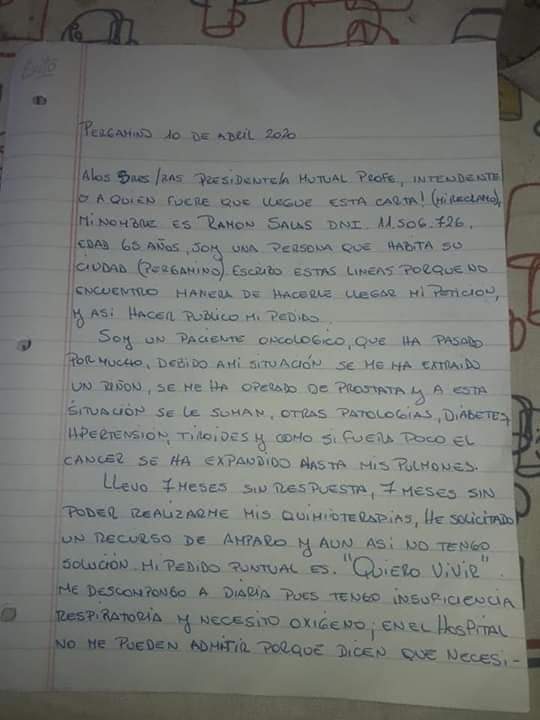 PERGAMINO 10 DE ABRIL 2020
A LOS SRES/RAS PRESIDENTE/A MUTUAL PROFE, INTENDENTE
O A QUIEN FUERE QUE LLEGUE ESTA CARTA! (MI RECLAMO),
MI NOMBRE ES RAMON SALAS DNI 11.506.726,
EDAD 65 AÑOS, SOY UNA PERSONA QUE HABITA SU
CIUDAD (PERGAMINO) ESCRIBO ESTAS LINEAS PORQUE NO
ENCUENTRO MANERA DE HACERLE LLEGAR MI PETICION,
Y ASI HACER PUBLICO MI PEDIDO.
SOY UN PACIENTE ONCOLOGICO, QUE HA PASADO
POR MUCHO, DEBIDO A MI SITUACIÓN SE ME HA EXTRAIDO
UN RIÑON, SE ME HA OPERADO DE PROSTATA Y A ESTA
SITUACIÓN SE LE SUMAN, OTRAS PATOLOGIAS, DIABETES,
HPERTENSION, TIROIDES Y COMO SI FUERA POCO EL
CANCER SE HA EXPANDIDO HASTA MIS PULMONES.
LLEVO 7 MESES SIN RESPUESTA, 7 MESES SIN
PODER REALIZARME MIS QUIMIOTERAPIAS, HE SOLICITADO
UN RECURSO DE AMPARO Y AUN ASI NO TENGO
SOLUCIÓN. MI PEDIDO PUNTUAL ES. "QUIERO VIVIR".
ME DESCOMPONGO A DIARIA PUES TENGO INSUFICIENCIA
RESPIRATORIA Y NECESITO OXIGENO; EN EL HOSPITAL
NO ME PUEDEN ADMITIR PORQUE DICEN QUE NECESI-